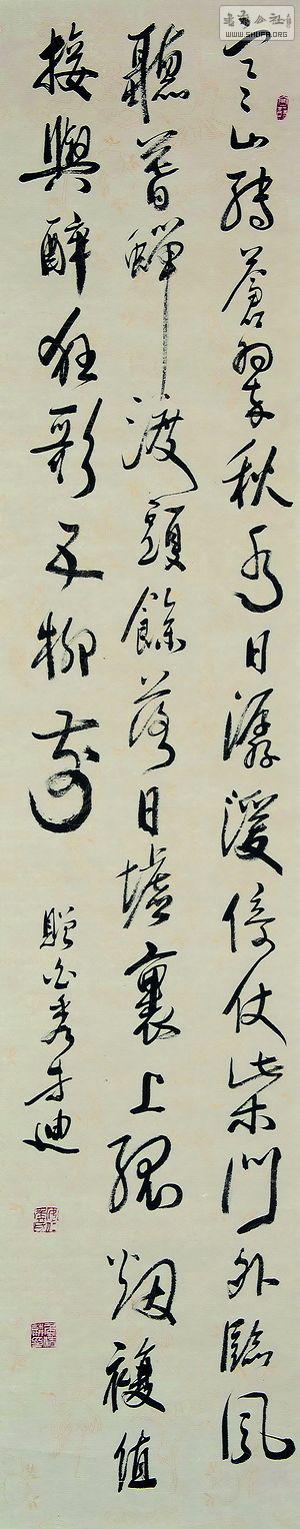 寒山轉蒼翠秋水日潺湲倚仗柴門外臨風
聽暮蟬渡頭餘落日墟裏上孤烟複值
接輿醉狂歌五柳前
贈裴秀才迪
公社
WWW.SHUFA.ORG